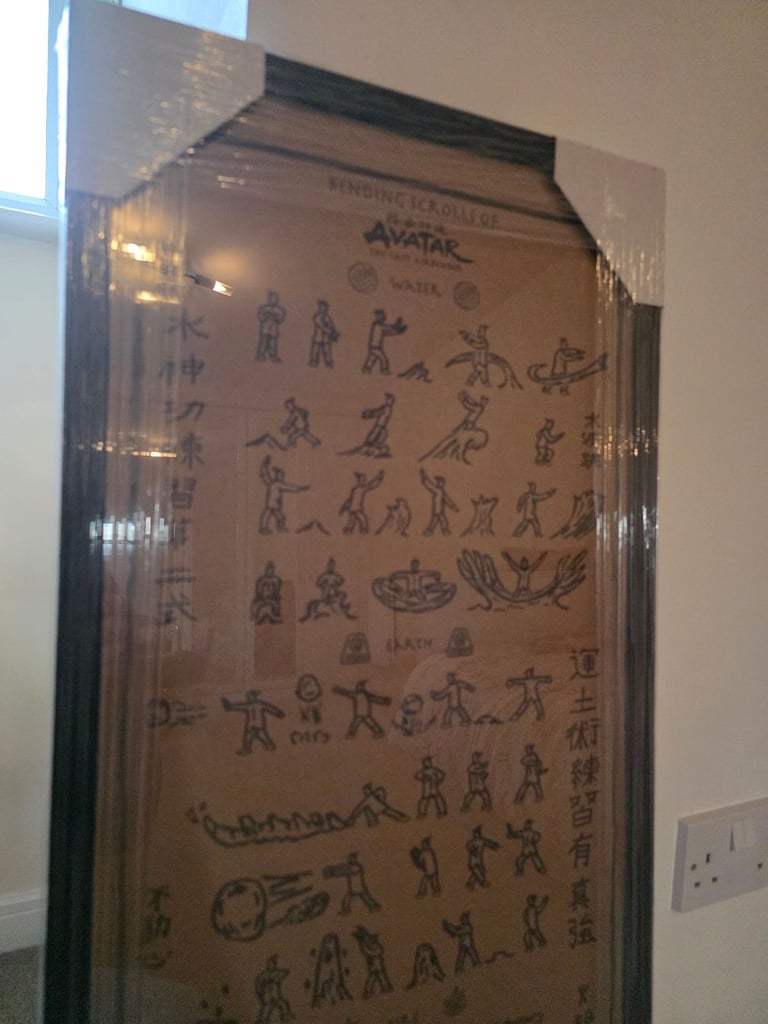 BENDING SCROLLS OF
AVATAR
THE LAST AIRBENDER
WATER
水神功練習第二式
EARTH
運土術練習有真強
不動心